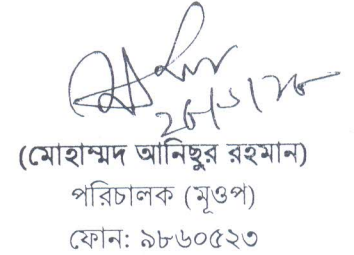 (মোহাম্মদ আনিছুর রহমান)
পরিচালক (মূওপ)
ফোন: ৯৮৬০৫২৩